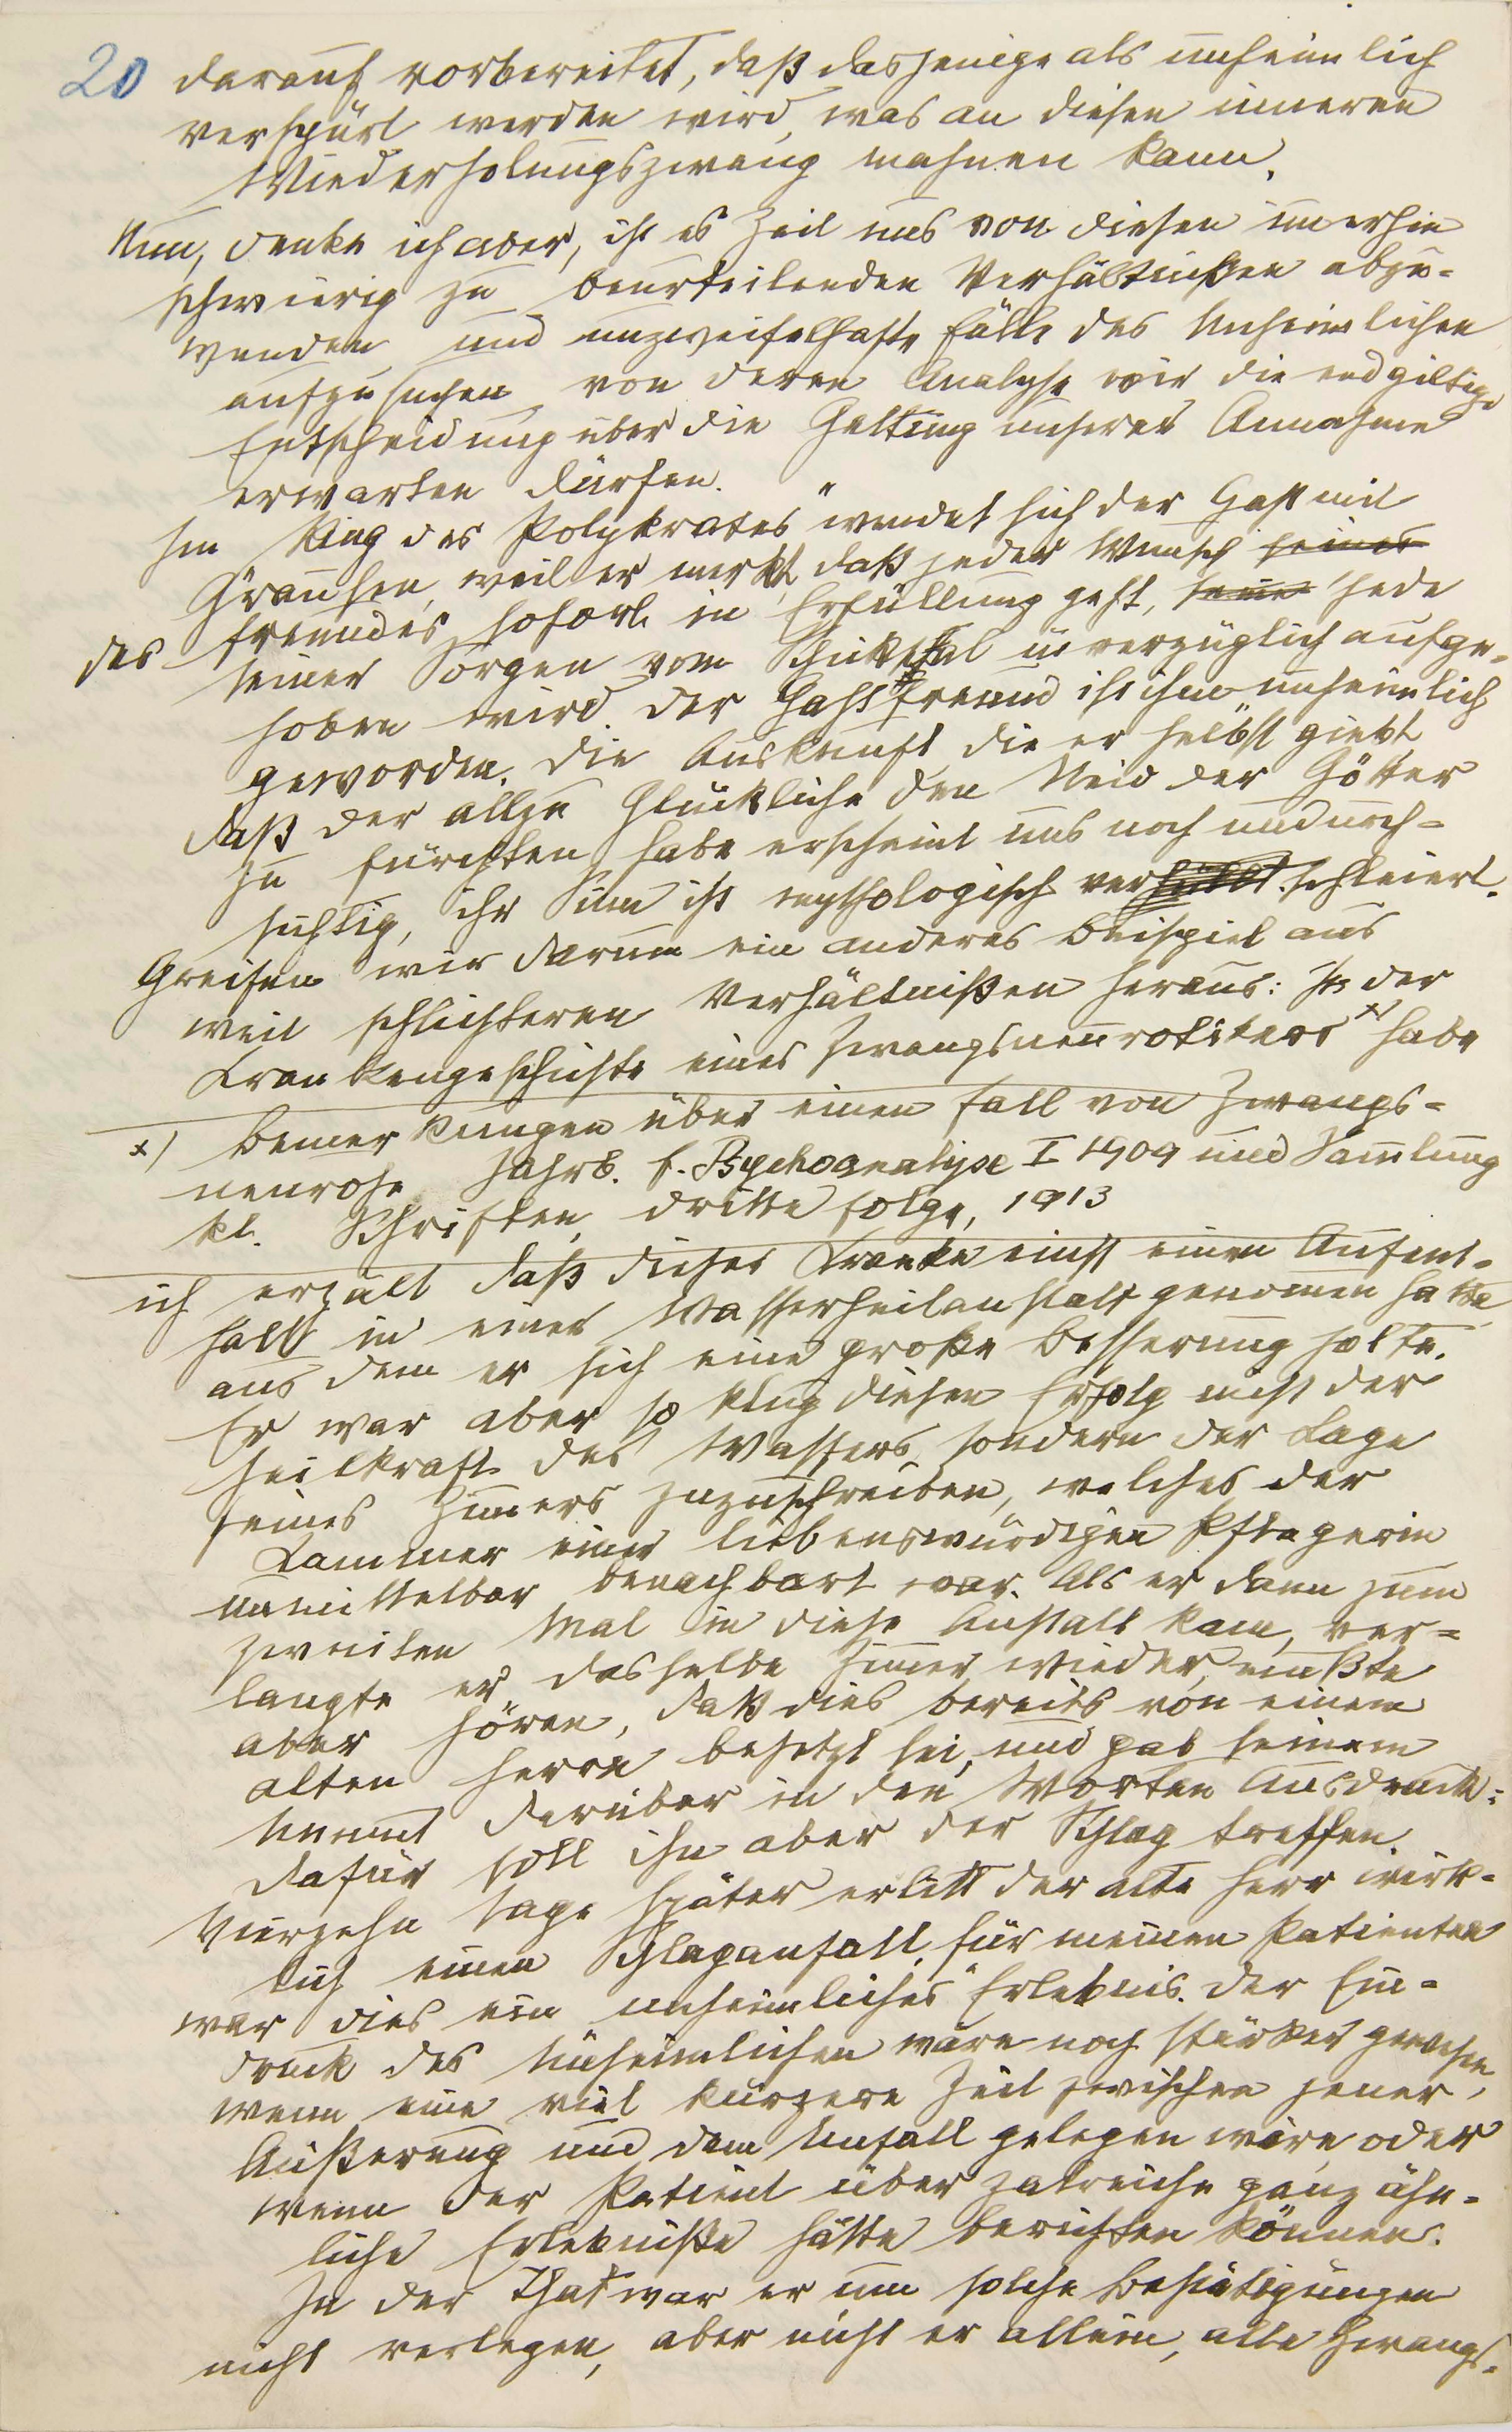 20 darauf vorbereitet, daß dasjenige als unheimlich
verspürt werden wird, was an diesen inneren
Wiederholungszwang mahnen kann.
Nun, denke ich aber, ist es Zeit uns von diesen imerhin
schwierig zu beurteilenden Verhältnißen abzu-
wenden und unzweifelhafte Fälle des Unheimlichen
aufzusuchen, von deren Analyse wir die endgiltige
Entscheidung über die Geltung unserer Annahme
erwarten dürfen.
Im Ring des Polykrates" wendet sich der Gast mit
Grausen, weil er merkt, daß jeder Wunsch seines
des Freundes sofort in Erfüllung geht, seine jede
seiner Sorgen vom Schicksal unverzüglich aufge-
hoben wird. Der Gastfreund ist ihm unheimlich
geworden. Die Auskunft, die er selbst giebt,
daß der allzu Glückliche den Neid der Götter
zu fürchten habe erscheint uns noch undurch-
sichtig, ihr Sinn ist mythologisch verhüllt. schleiert.
Greifen wir darum ein anderes Beispiel aus
weit schlichteren Verhältnißen heraus: In der
Krankengeschichte eines Zwangsneurotikers x) habe
x) Bemerkungen über einen Fall von Zwangs-
neurose Jahrb. f. Psychoanalyse I 1909 und Sammlung
kl. Schriften, dritte Folge, 1913
ich erzält daß dieser Kranke einst einen Aufent-
halt in einer Wasserheilanstalt genomen hatte
aus dem er sich eine große Besserung holte.
Er war aber so klug diesen Erfolg nicht der
Heilkraft des Wassers, sondern der Lage
seines Zimers zuzuschreiben, welches der
Kammer einer liebenswürdigen Pflegerin
unmittelbar benachbart war. Als er dann zum
zweiten Mal in diese Anstalt kam, ver-
langte er dasselbe Zimer wieder, mußte
aber hören, daß dies bereits von einem
alten Herrn besetzt sei, und gab seinem
Unmut darüber in den Worten Ausdruck:
Dafür soll ihn aber der Schlag treffen.
Vierzehn Tage später erlitt der alte Herr wirk-
lich einen Schlaganfall. Für meinen Patienten
war dies ein „unheimliches" Erlebnis. Der Ein-
druck des Unheimlichen wäre noch stärker gewesen,
wenn eine viel kürzere Zeit zwischen jener
Äußerung und dem Unfall gelegen wäre, oder
wenn der Patient über zalreiche ganz ähn-
liche Erlebniße hätte berichten können.
In der That war er um solche Bestätigungen
nicht verlegen, aber nicht er allein, alle Zwangs-